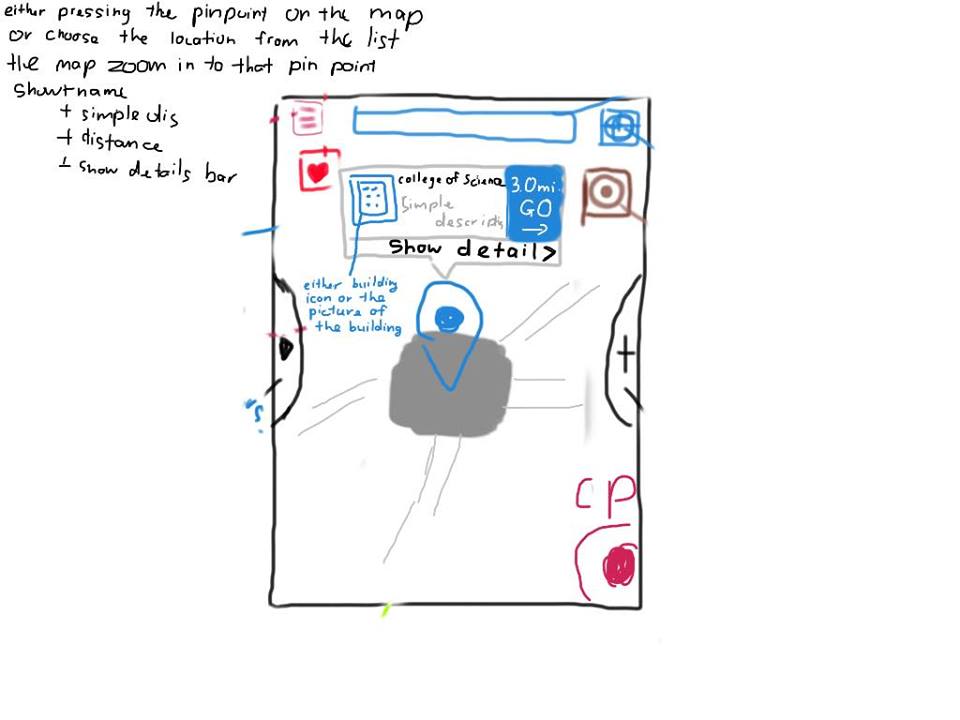 either pressing the pinpoint on the map
or choose the location from the list
the map zoom in to that pin point
show name
+ simple dis
+ distance
+ show details bar
college of Science
Simple
descripti
3.0mi.
GO
Show detail>
either building
icon or the
picture of
the building
+
CP